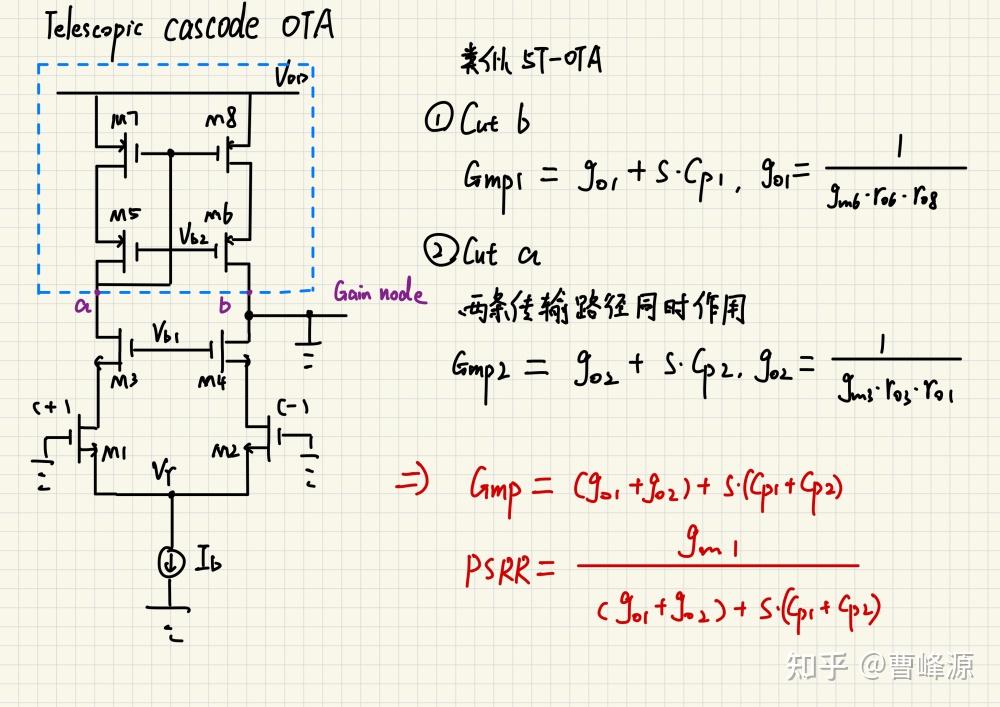 Telescopic cascode OTA
VDD
M7
M8
M5
M6
Vb2
a
b
Gain node
Vb1
M3
M4
(+)
(-)
M1
M2
Vr
Ib
类似 5T-OTA
① Cut b
Gmp1 = go1 + S·Cp1, go1 = 1/(gm6·ro6·ro8)
② Cut a
两条传输路径同时作用
Gmp2 = go2 + S·Cp2, go2 = 1/(gm3·ro3·ro1)
⇒ Gmp = (go1+go2) + S·(Cp1+Cp2)
PSRR = gm1/((go1+go2) + S·(Cp1+Cp2))
知乎 @曹峰源